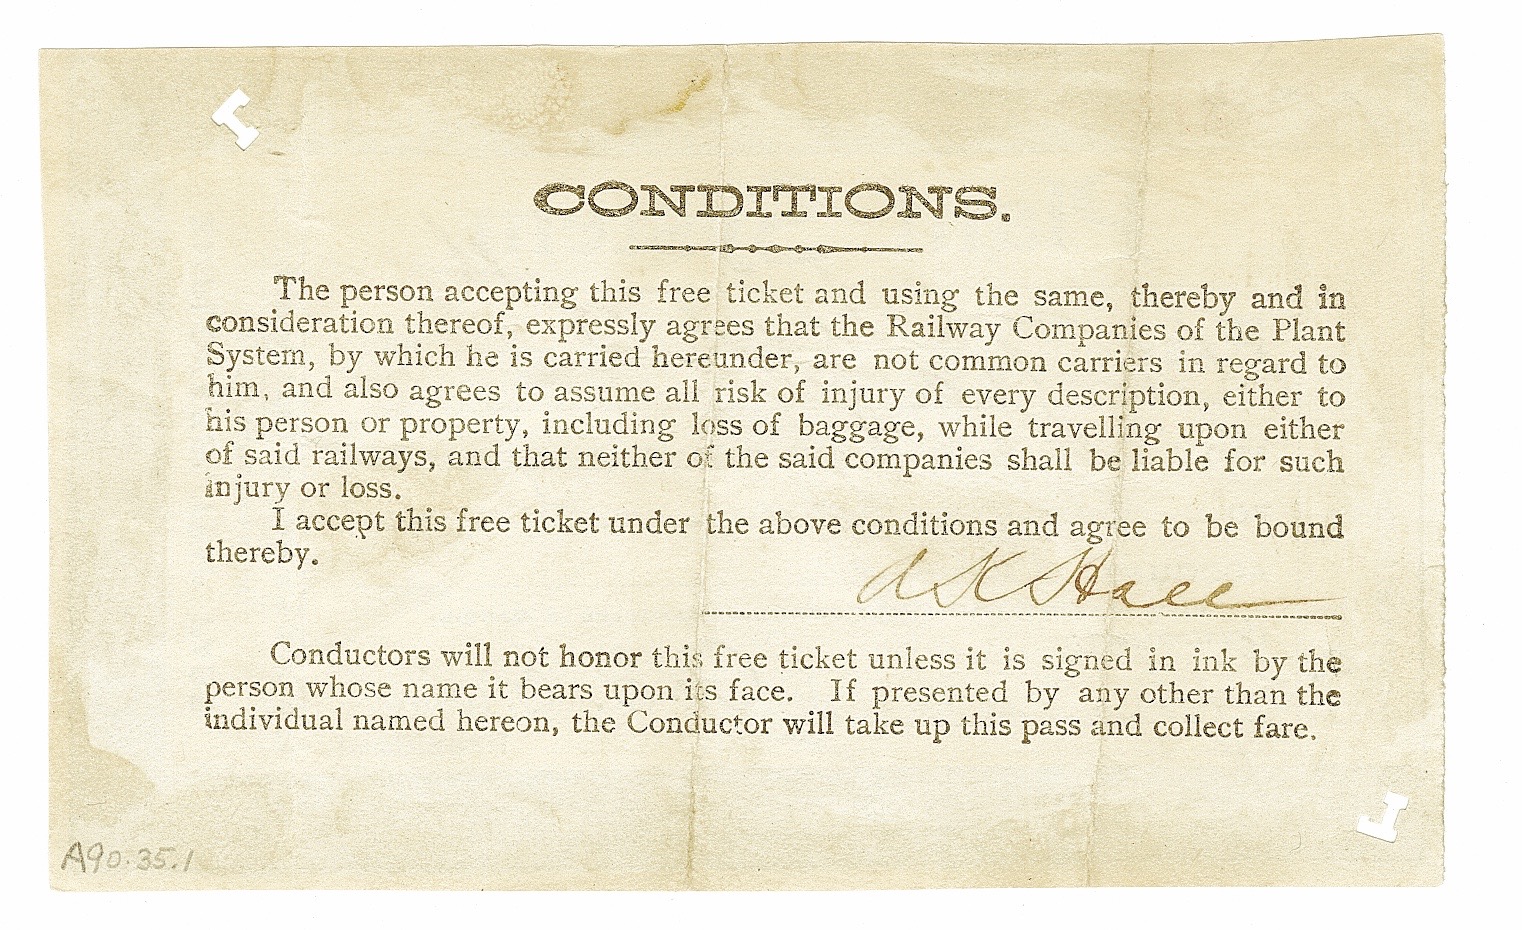 CONDITIONS.
The person accepting this free ticket and using the same, thereby and in
consideration thereof, expressly agrees that the Railway Companies of the Plant
System, by which he is carried hereunder, are not common carriers in regard to
him, and also agrees to assume all risk of injury of every description, either to
his person or property, including loss of baggage, while travelling upon either
of said railways, and that neither of the said companies shall be liable for such
injury or loss.
I accept this free ticket under the above conditions and agree to be bound
thereby.
A K Hall
Conductors will not honor this free ticket unless it is signed in ink by the
person whose name it bears upon its face. If presented by any other than the
individual named hereon, the Conductor will take up this pass and collect fare.
A90.35.1